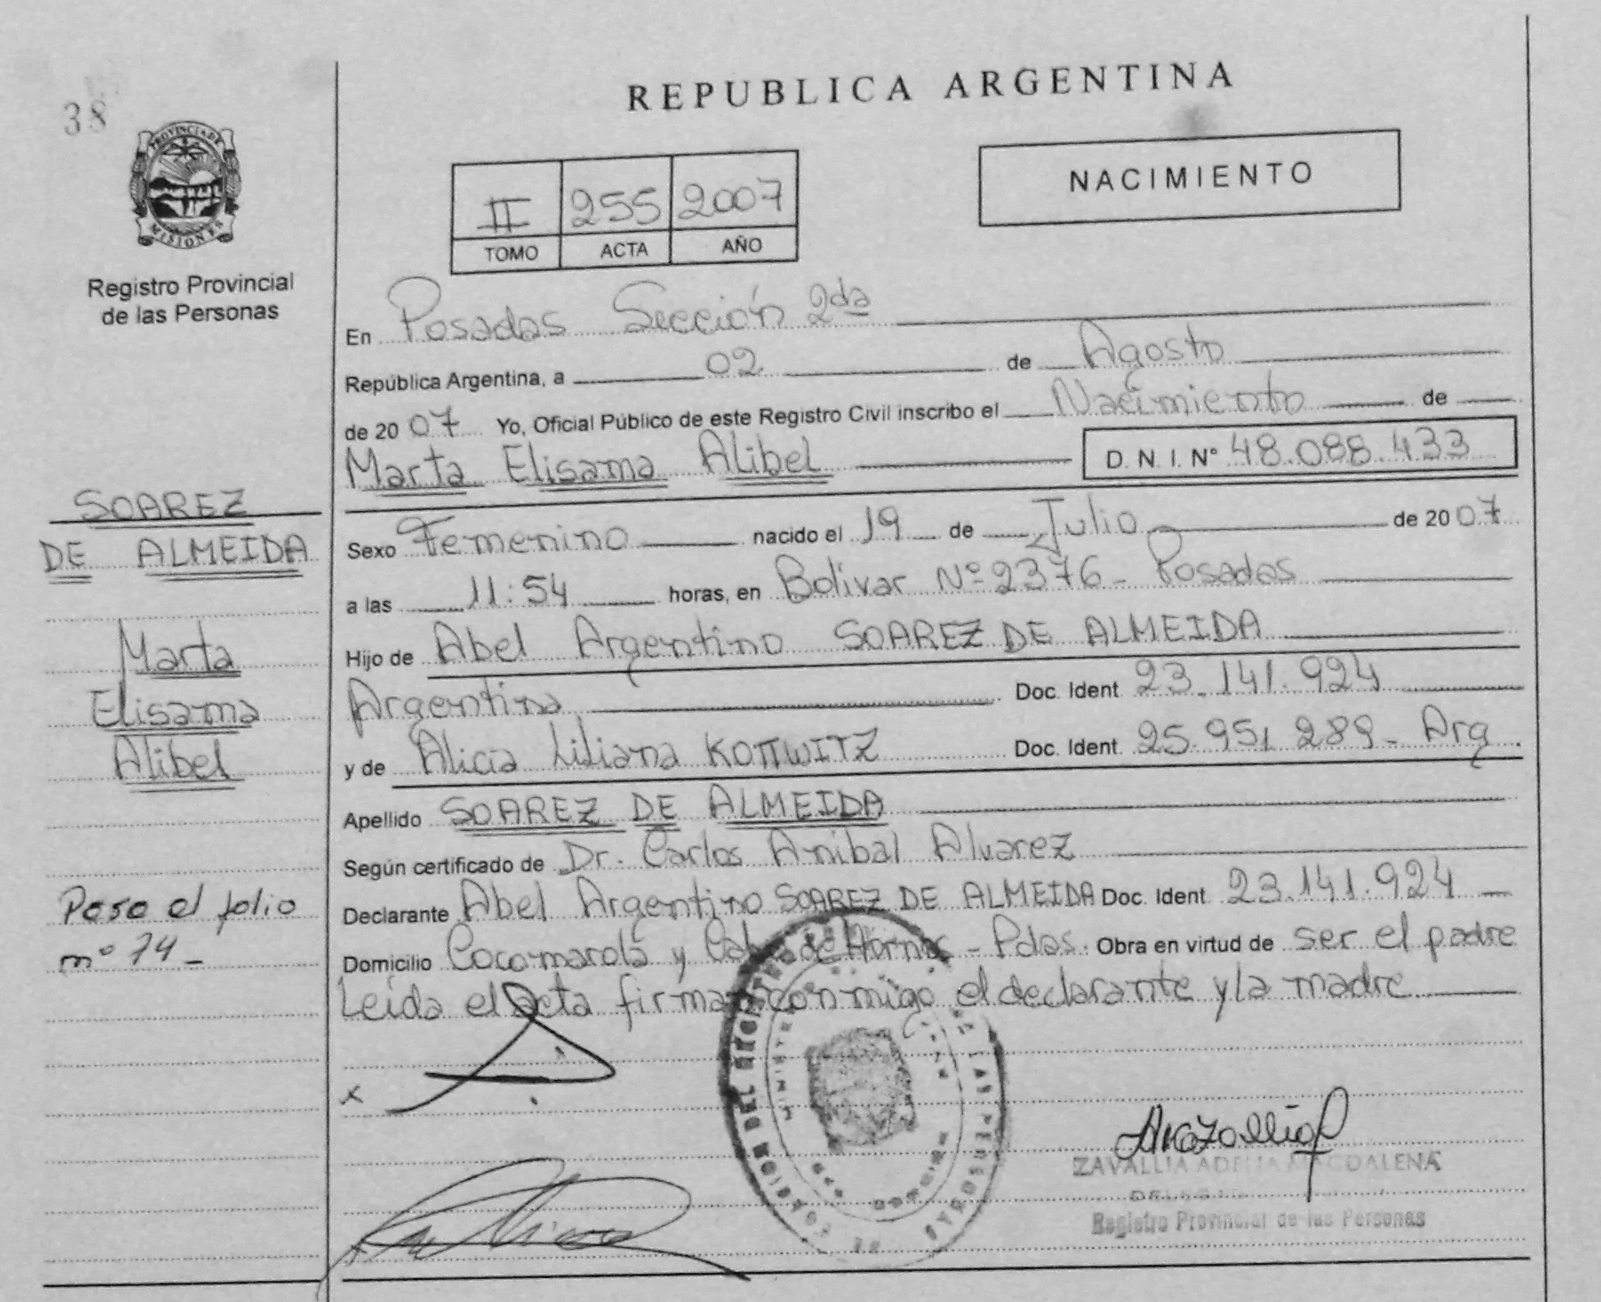 REPUBLICA ARGENTINA
38
PROVINCIA DE
MISIONES
Registro Provincial
de las Personas
NACIMIENTO
II 255 2007
TOMO ACTA AÑO
En Posadas Sección 2da
República Argentina, a 02 de Agosto
de 20 07 Yo, Oficial Público de este Registro Civil inscribo el Nacimiento de
Marta Elisama Alibel D. N. I. Nº 48.088.433
Sexo Femenino nacido el 19 de Julio de 20 07
a las 11:54 horas, en Bolivar Nº 2376 - Posadas
Hijo de Abel Argentino SOAREZ DE ALMEIDA
Argentina Doc. Ident. 23.141.924
y de Alicia Liliana KOTTWITZ Doc. Ident. 25.951.289 - Arg.
Apellido SOAREZ DE ALMEIDA
Según certificado de Dr. Carlos Anibal Alvarez
Declarante Abel Argentino SOAREZ DE ALMEIDA Doc. Ident. 23.141.924 -
Domicilio Cocomarola y Cabo de Hornos - Pdas. Obra en virtud de ser el padre
Leída el acta firman conmigo el declarante y la madre
SOAREZ
DE ALMEIDA
Marta
Elisama
Alibel
Paso al folio
nº 74 -
x
ZAVALLIA ADELIA MAGDALENA
Registro Provincial de las Personas